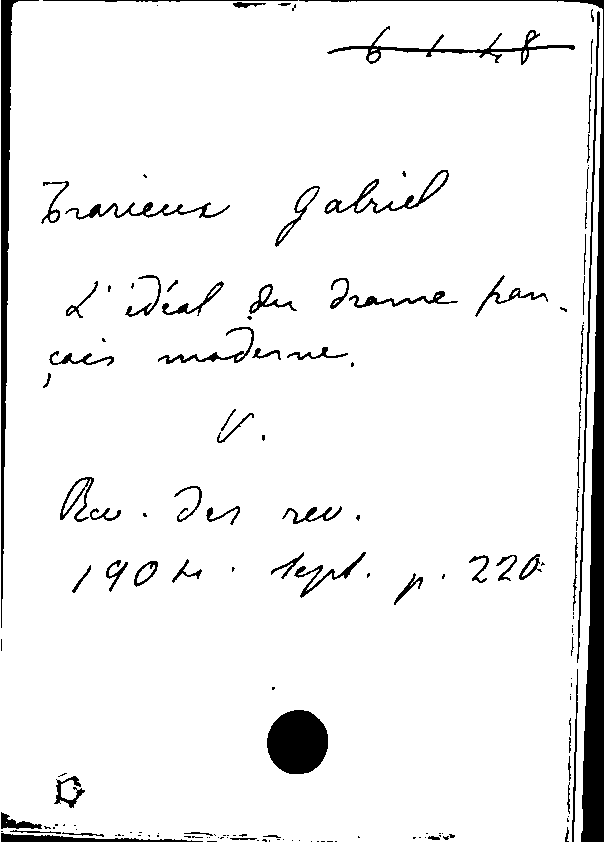 6 1 48
Trarieux Gabriel
L'idéal du drame fran-
çais moderne.
V.
Rev. des rev.
1904. Sept. p. 220